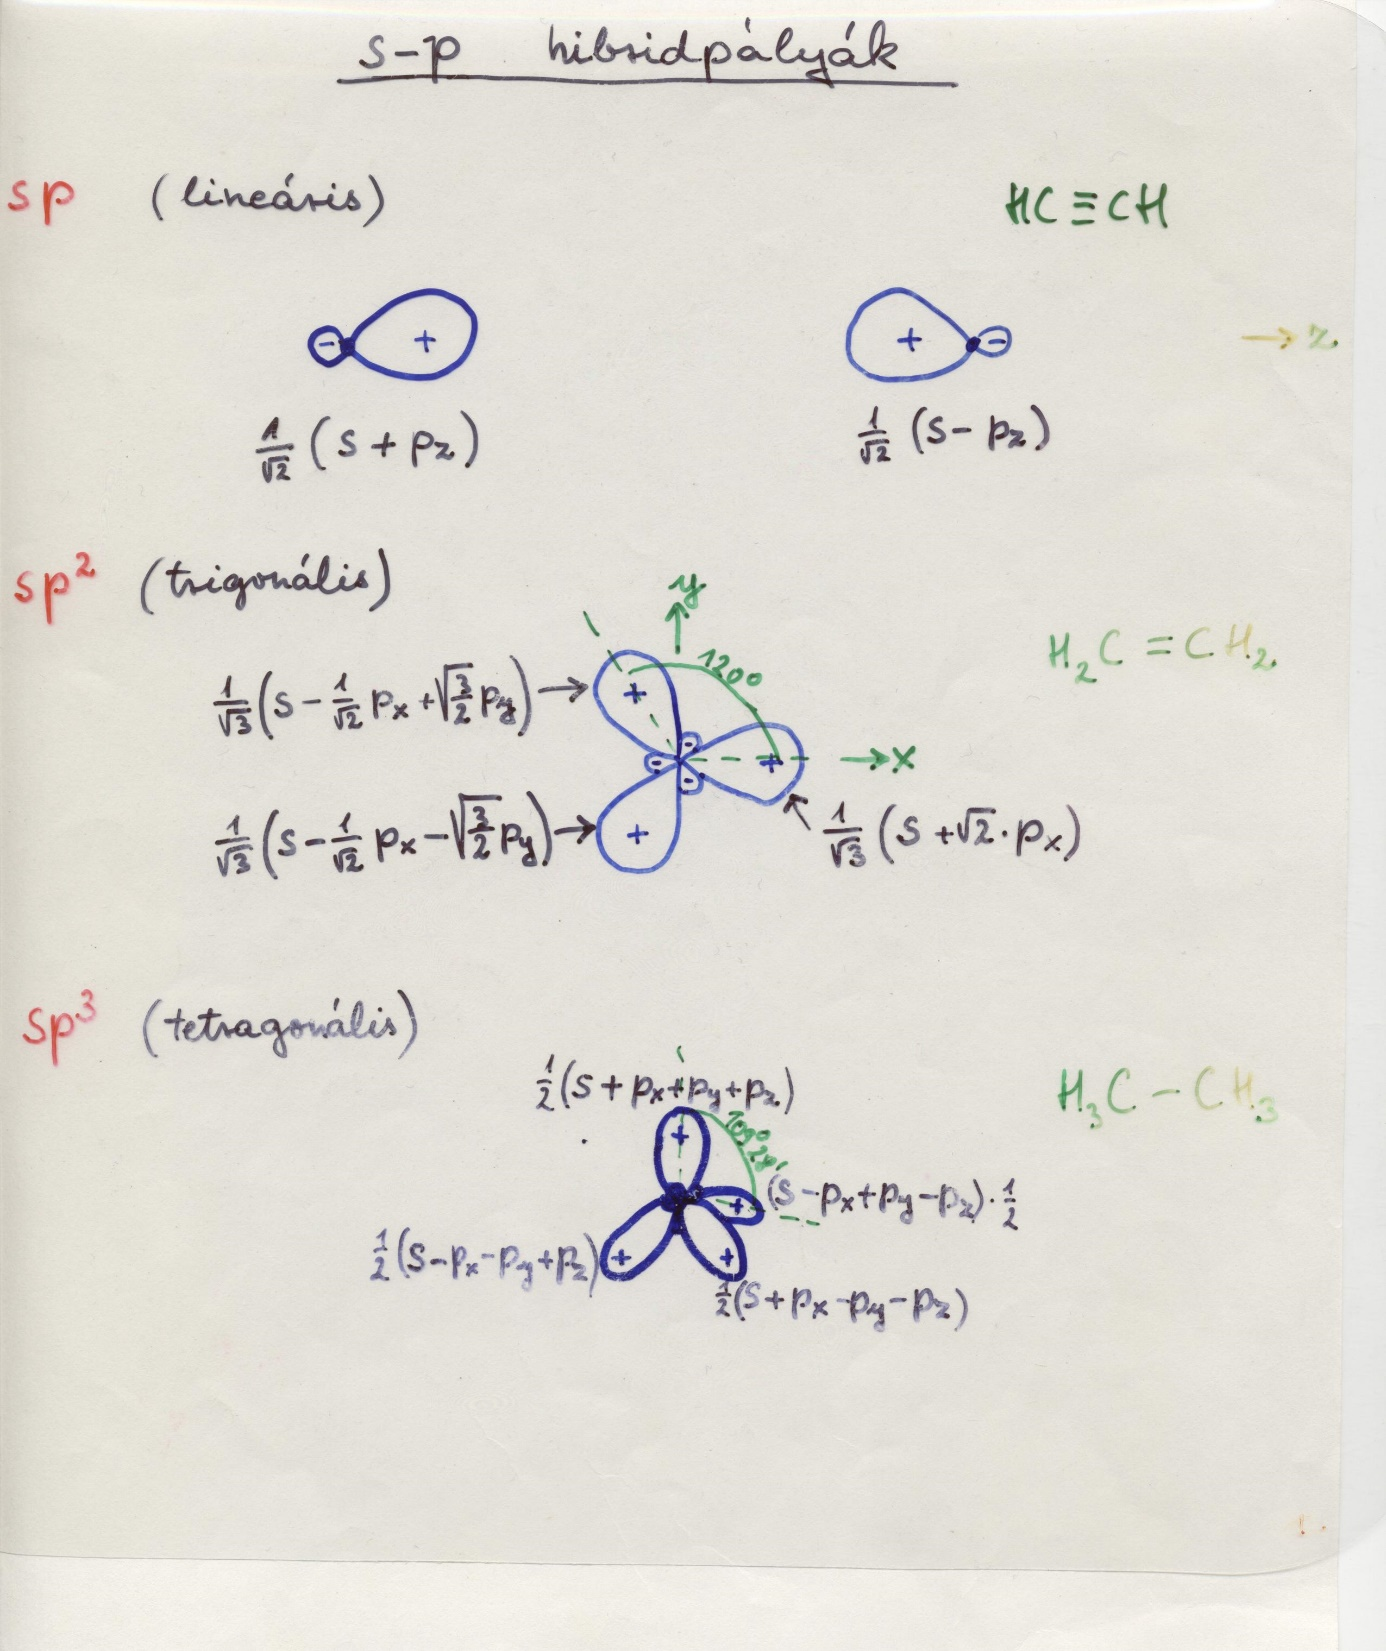 s-p hibridpályák
sp (lineáris) HC≡CH
- + + - → z
1/√2 (s + pz) 1/√2 (s - pz)
sp² (trigonális)
y
H₂C = CH₂
120°
1/√3 (s - 1/√2 px + √3/2 py) → +
- - - + → x
1/√3 (s - 1/√2 px - √3/2 py) → + 1/√3 (s + √2 · px)
sp³ (tetragonális)
1/2 (s + px + py + pz) H₃C - CH₃
+ 109° 28'
+ (s - px + py - pz) · 1/2
1/2 (s - px - py + pz) + +
1/2 (s + px - py - pz)